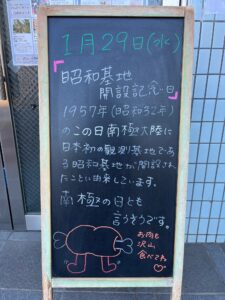 1月29日(水)
「昭和基地
開設記念日」
1957年(昭和32年)
のこの日南極大陸に
日本初の観測基地であ
る昭和基地が開設され
たことに由来しています。
南極の日とも
言うそうです。
お肉も
沢山
食べてね♡